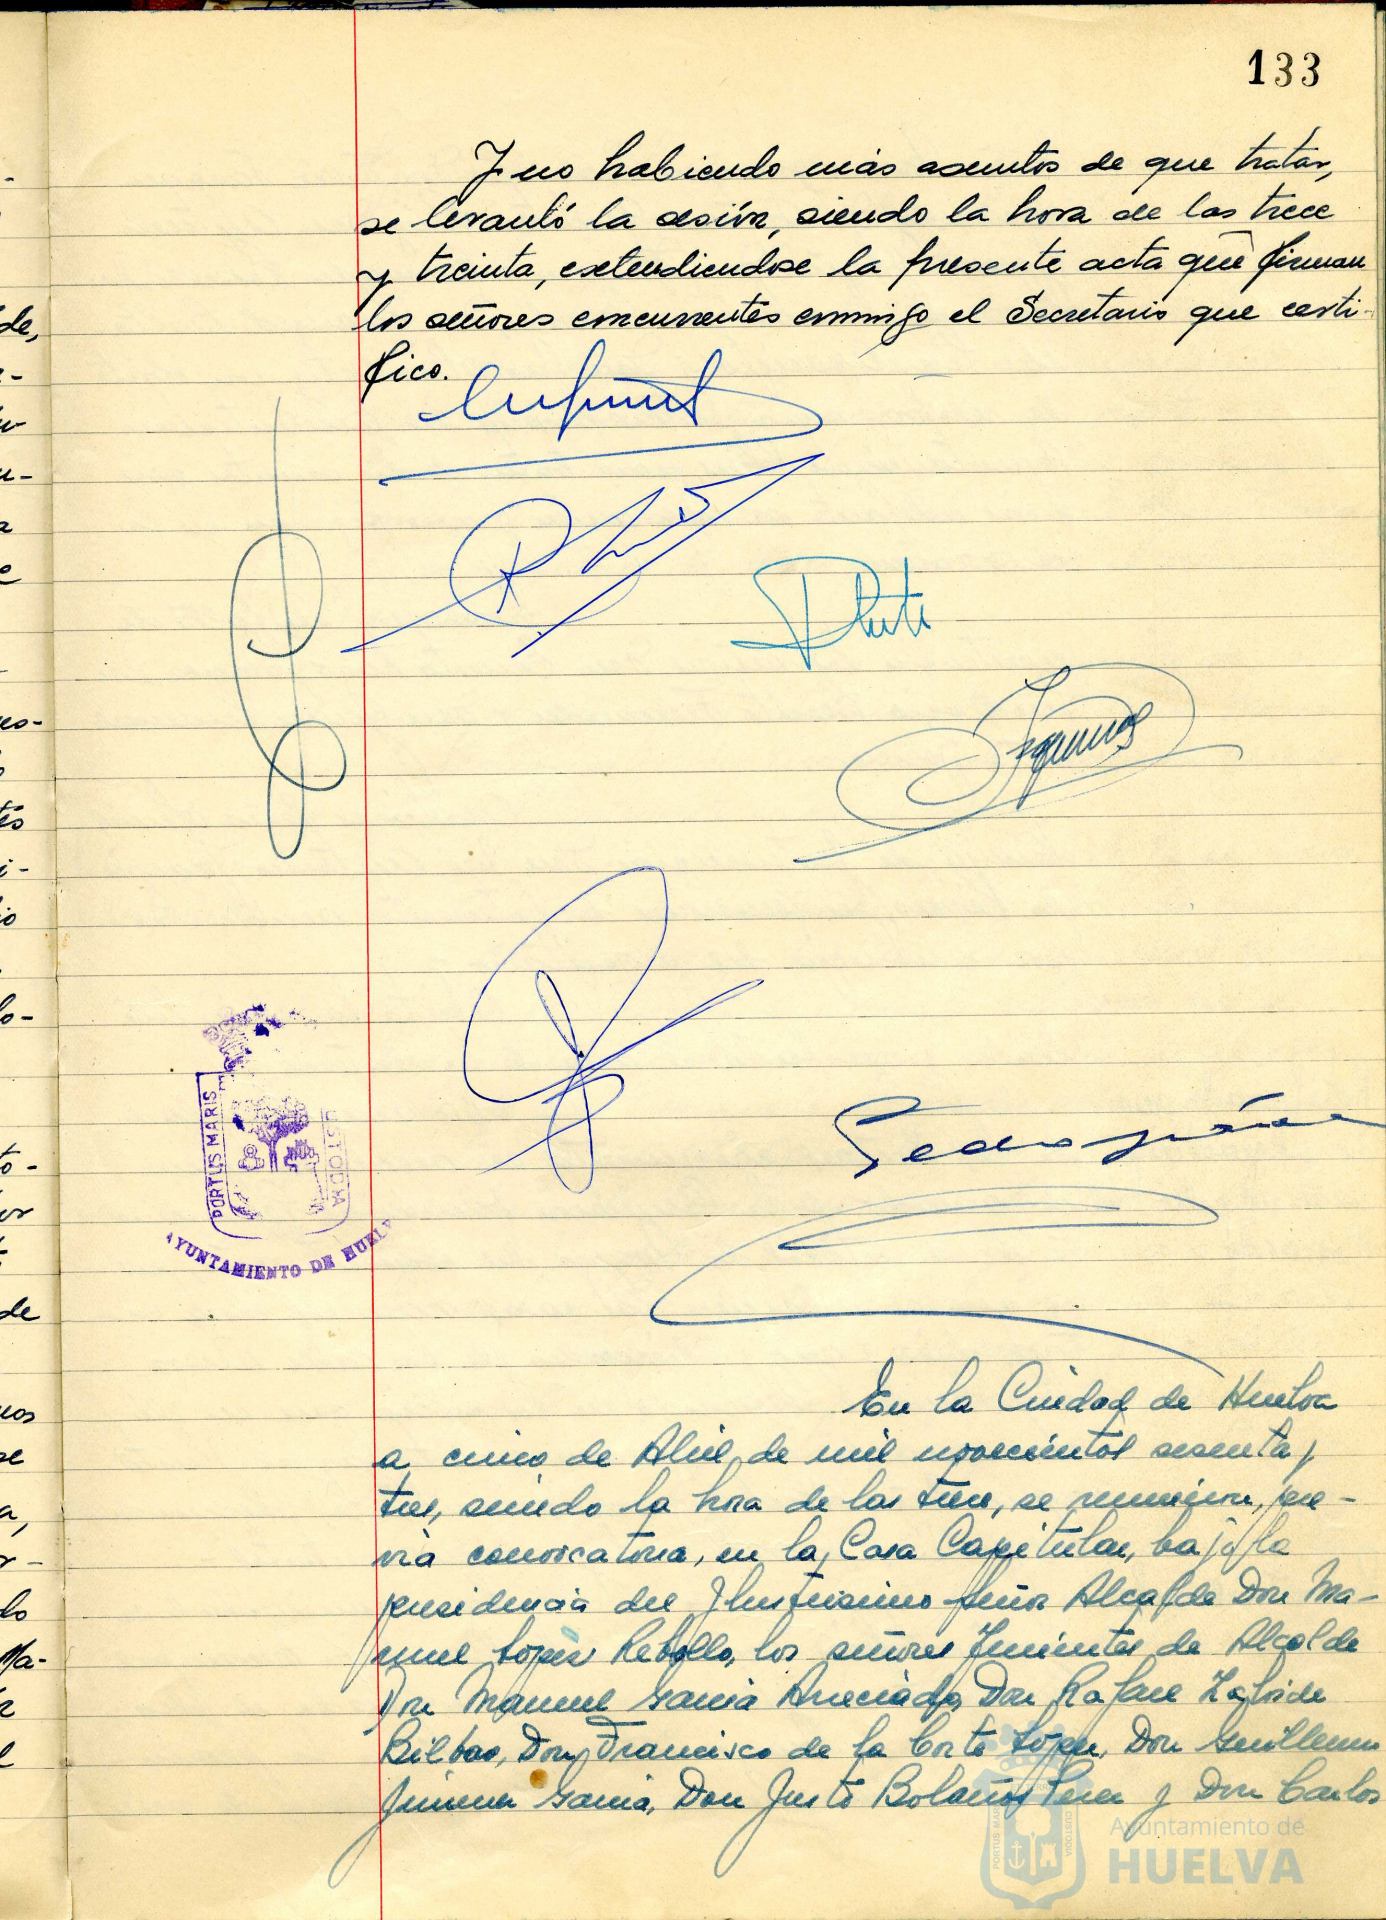 133
Y no habiendo más asuntos de que tratar,
se levantó la sesión, siendo la hora de las trece
y treinta, extendiendose la presente acta que firman
los señores concurrentes conmigo el Secretario que certi-
fico.
PORTUS MARIS
CUSTODIA
AYUNTAMIENTO DE HUELVA
En la Ciudad de Huelva
a cinco de Abril de mil novecientos sesenta y
tres, siendo la hora de las trece, se reunieron, pre-
via convocatoria, en la Casa Capitular, bajo la
presidencia del Ilustrisimo Señor Alcalde Don Ma-
nuel López Rebollo, los señores Tenientes de Alcalde
Don Manuel Garcia Don Rafael
Bilbao, Don Francisco de la Corte López, Don Guillermo
Jimenez Garcia, Don Justo Bolaños Perez y Don Carlos
Ayuntamiento de
HUELVA